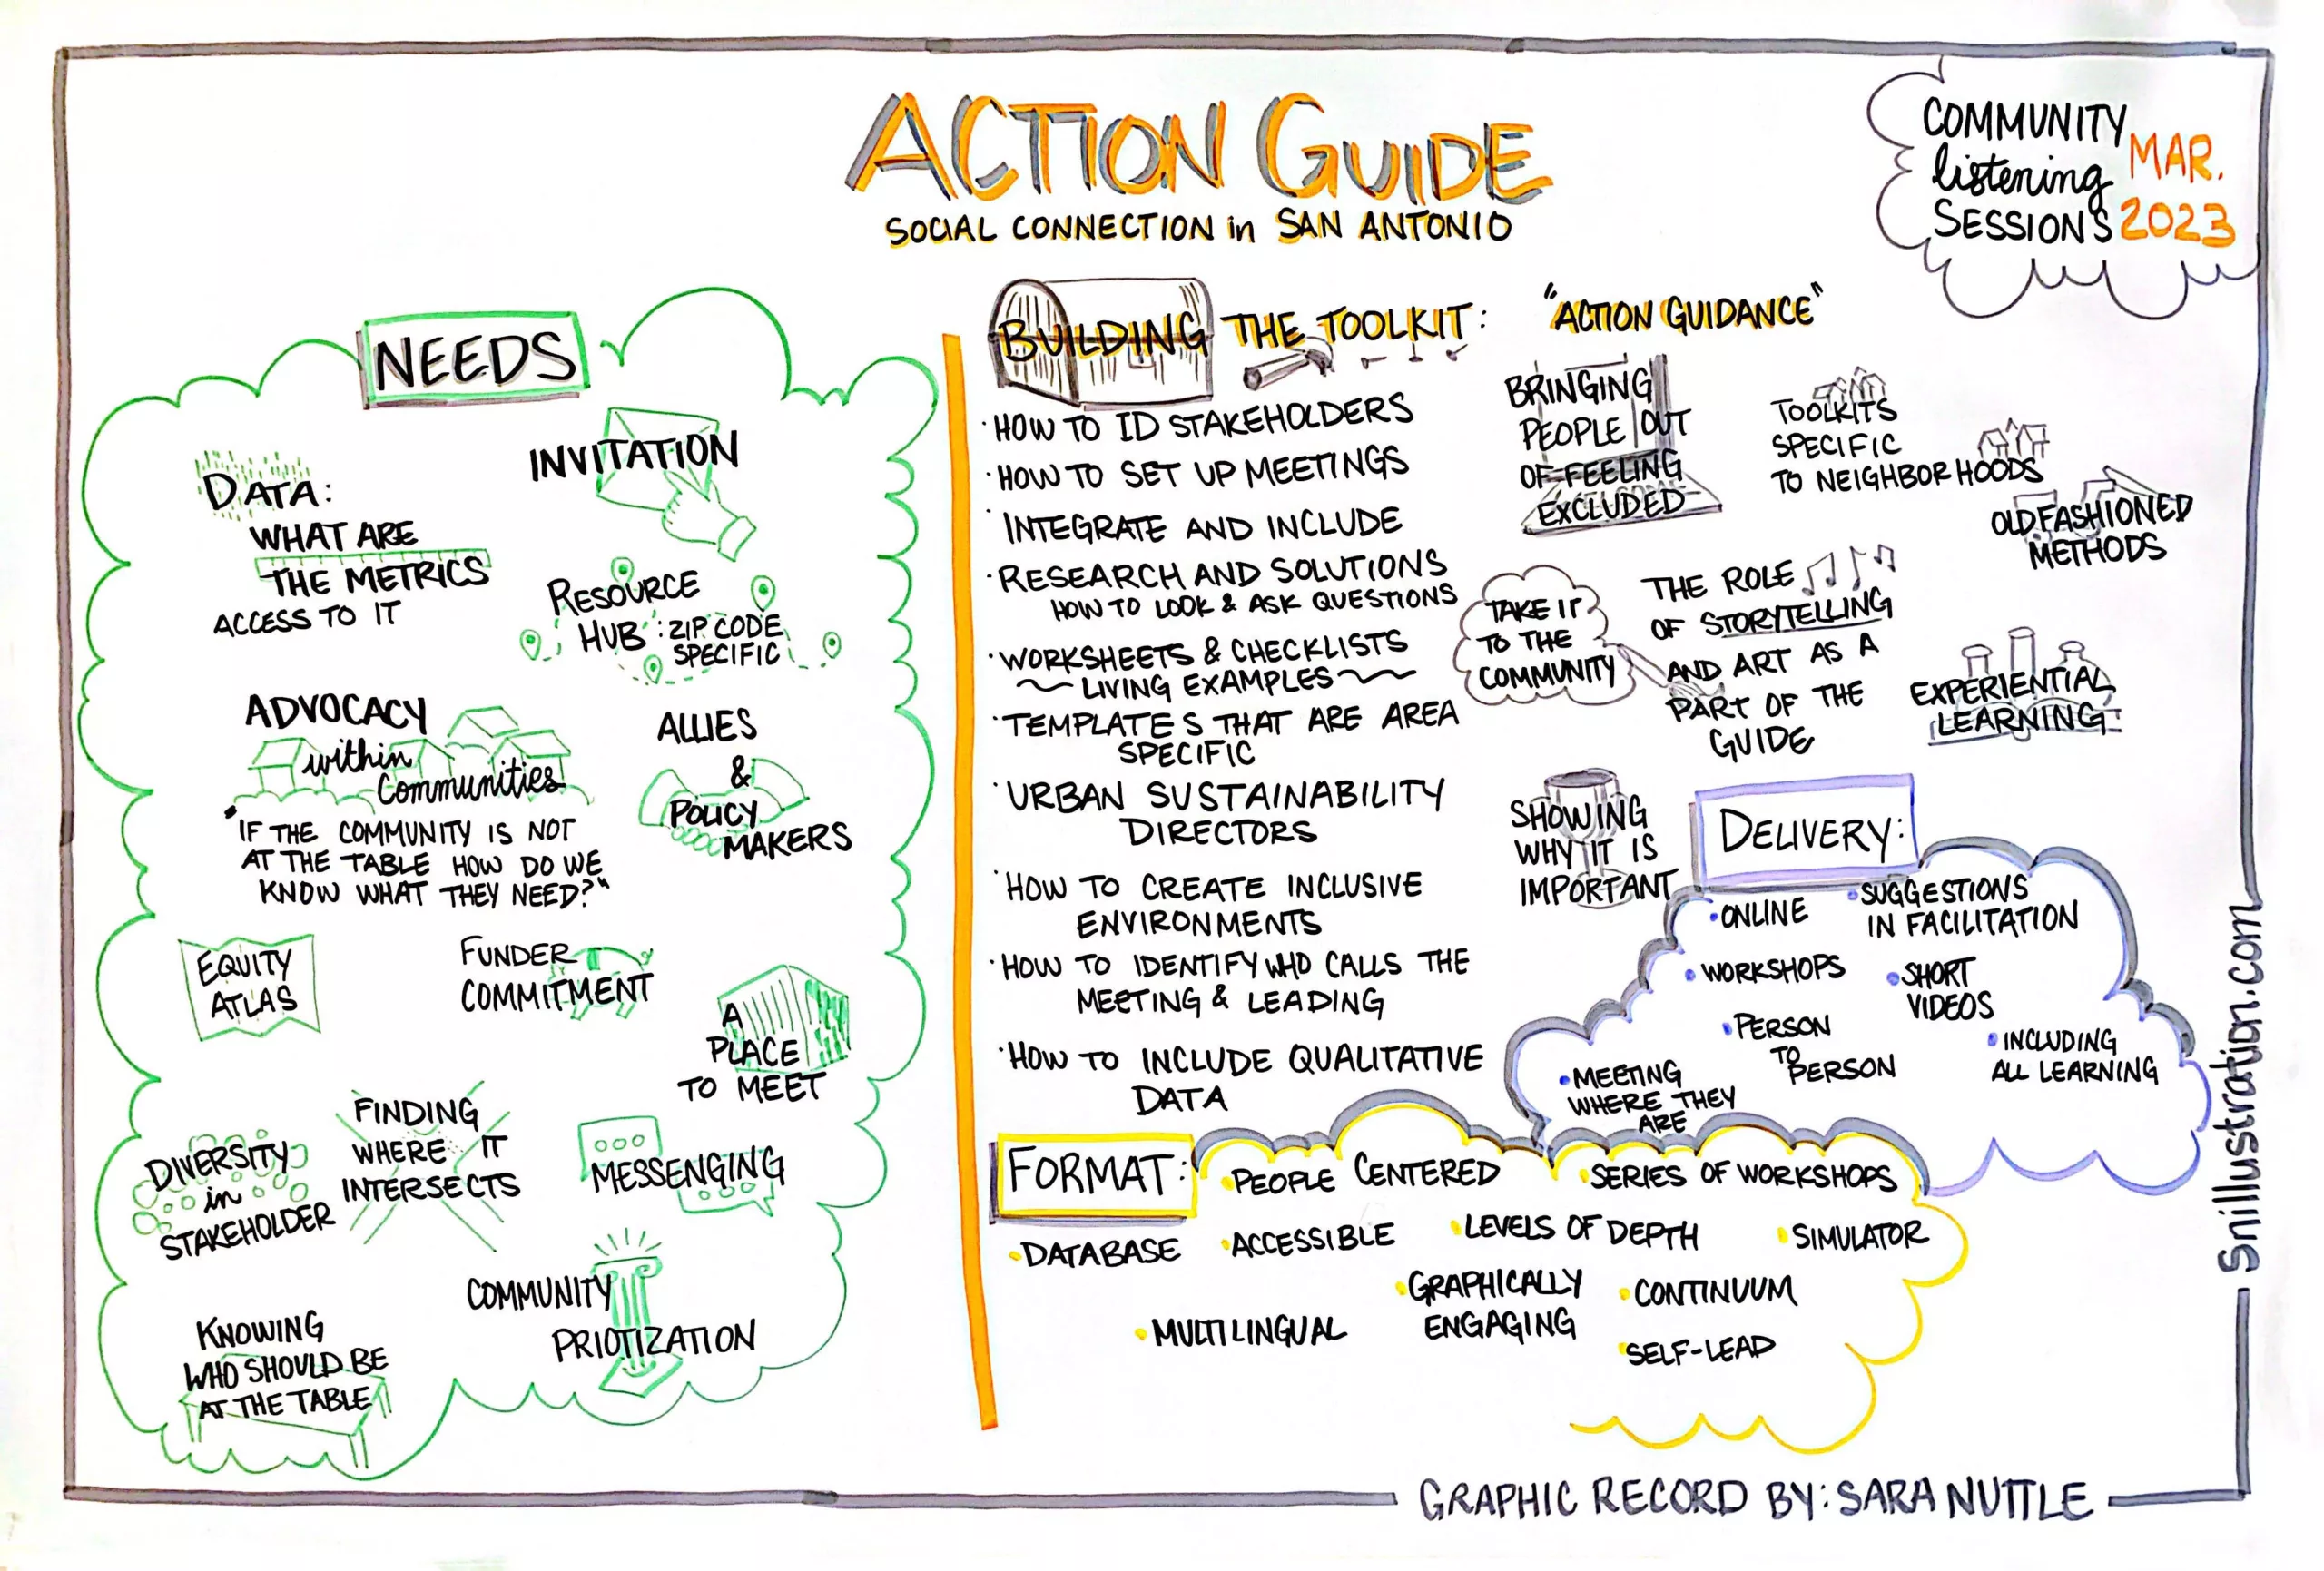 ACTION GUIDE
SOCIAL CONNECTION in SAN ANTONIO
COMMUNITY
listening
SESSIONS
MAR.
2023
NEEDS
DATA:
WHAT ARE
THE METRICS
ACCESS TO IT
INVITATION
RESOURCE
HUB: ZIP CODE
SPECIFIC
ADVOCACY
within
Communities
"IF THE COMMUNITY IS NOT
AT THE TABLE HOW DO WE
KNOW WHAT THEY NEED?"
ALLIES
&
POLICY
MAKERS
EQUITY
ATLAS
FUNDER
COMMITMENT
A
PLACE
TO MEET
DIVERSITY
in
STAKEHOLDER
FINDING
WHERE IT
INTERSECTS
MESSENGING
COMMUNITY
PRIOTIZATION
KNOWING
WHO SHOULD BE
AT THE TABLE
BUILDING THE TOOLKIT:
·HOW TO ID STAKEHOLDERS
·HOW TO SET UP MEETINGS
·INTEGRATE AND INCLUDE
·RESEARCH AND SOLUTIONS
HOW TO LOOK & ASK QUESTIONS
·WORKSHEETS & CHECKLISTS
~LIVING EXAMPLES~
·TEMPLATES THAT ARE AREA
SPECIFIC
·URBAN SUSTAINABILITY
DIRECTORS
·HOW TO CREATE INCLUSIVE
ENVIRONMENTS
·HOW TO IDENTIFY WHO CALLS THE
MEETING & LEADING
·HOW TO INCLUDE QUALITATIVE
DATA
"ACTION GUIDANCE"
BRINGING
PEOPLE OUT
OF FEELING
EXCLUDED
TOOLKITS
SPECIFIC
TO NEIGHBORHOODS
OLD FASHIONED
METHODS
TAKE IT
TO THE
COMMUNITY
THE ROLE
OF STORYTELLING
AND ART AS A
PART OF THE
GUIDE
EXPERIENTIAL
LEARNING
SHOWING
WHY IT IS
IMPORTANT
DELIVERY:
•ONLINE
•SUGGESTIONS
IN FACILITATION
•WORKSHOPS
•SHORT
VIDEOS
•PERSON
TO
PERSON
•INCLUDING
ALL LEARNING
•MEETING
WHERE THEY
ARE
FORMAT:
•PEOPLE CENTERED
•SERIES OF WORKSHOPS
•DATABASE
•ACCESSIBLE
•LEVELS OF DEPTH
•SIMULATOR
•MULTILINGUAL
•GRAPHICALLY
ENGAGING
•CONTINUUM
•SELF-LEAD
Snillustration.com
GRAPHIC RECORD BY: SARA NUTTLE